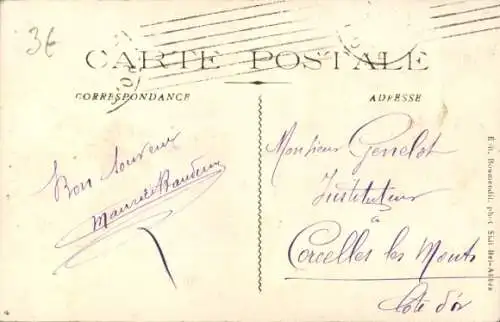 3€
CARTE POSTALE
CORRESPONDANCE
ADRESSE
Bon souvenir
Monsieur Genelot
Instituteur
à
Corcelles les Monts
Côte d'or
Edit. Boumendil, phot. Sidi Bel-Abbès